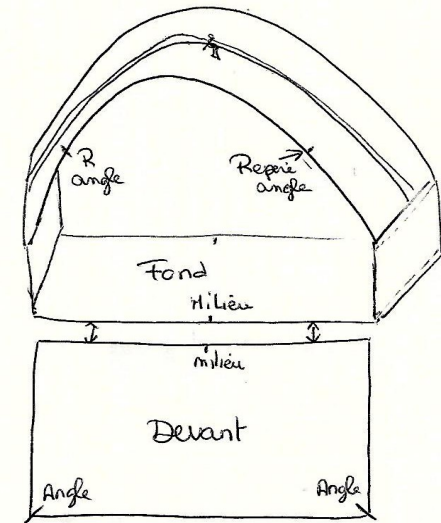 R
angle
Repère
angle
Fond
Milieu
milieu
Devant
Angle
Angle